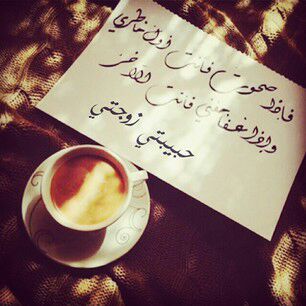 فإذا صحوت فأنت أول خاطري
وإذا غفا جفني فأنت الآخر
حبيبتي زوجتي